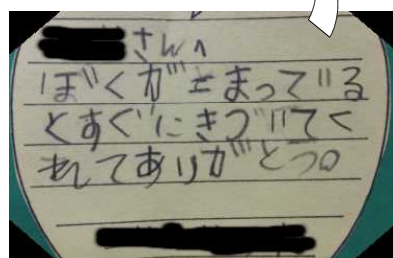 さんへ
ぼくがこまっている
とすぐにきづいてく
れてありがとう。